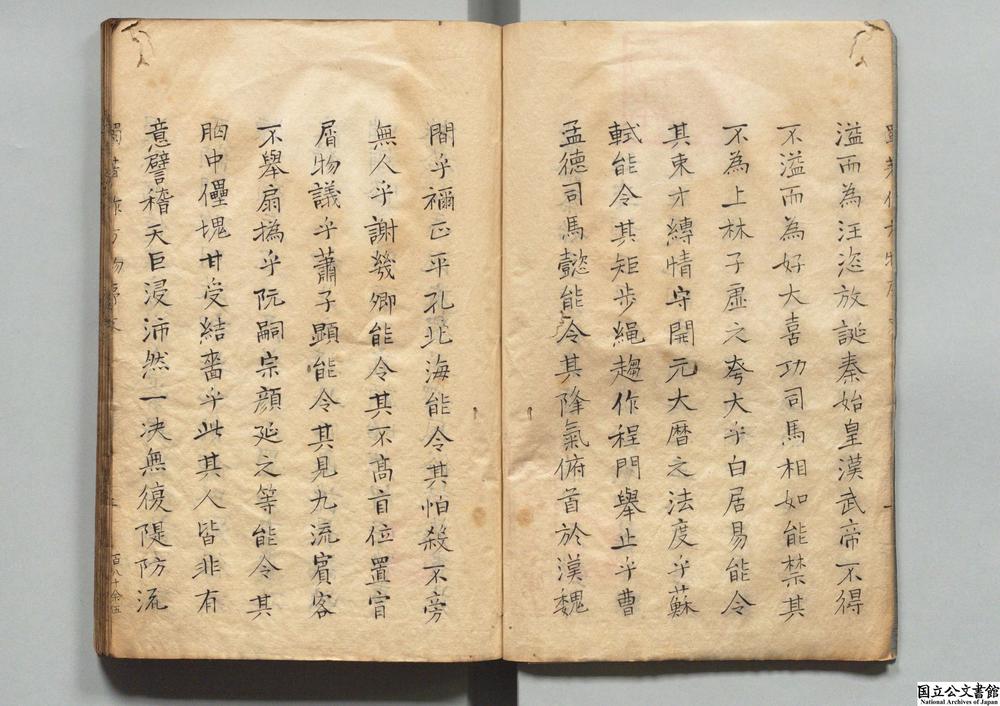 溢而為汪恣放誕秦始皇漢武帝不得
不溢而為好大喜功司馬相如能禁其
不為上林子虛之夸大乎白居易能令
其束才縛情守開元大曆之法度乎蘇
軾能令其矩步繩趨作程門舉止乎曹
孟德司馬懿能令其降氣俯首於漢魏
間乎禰正平孔北海能令其怕殺不旁
無人乎謝幾卿能令其不高盲位置官
屑物議乎蕭子顯能令其見九流賓客
不舉扇撝乎阮嗣宗顏延之等能令其
胸中儡塊甘受結嗇乎此其人皆非有
意譬稽天巨浸沛然一决無復隄防流
百八十余伍
国立公文書館
National Archives of Japan